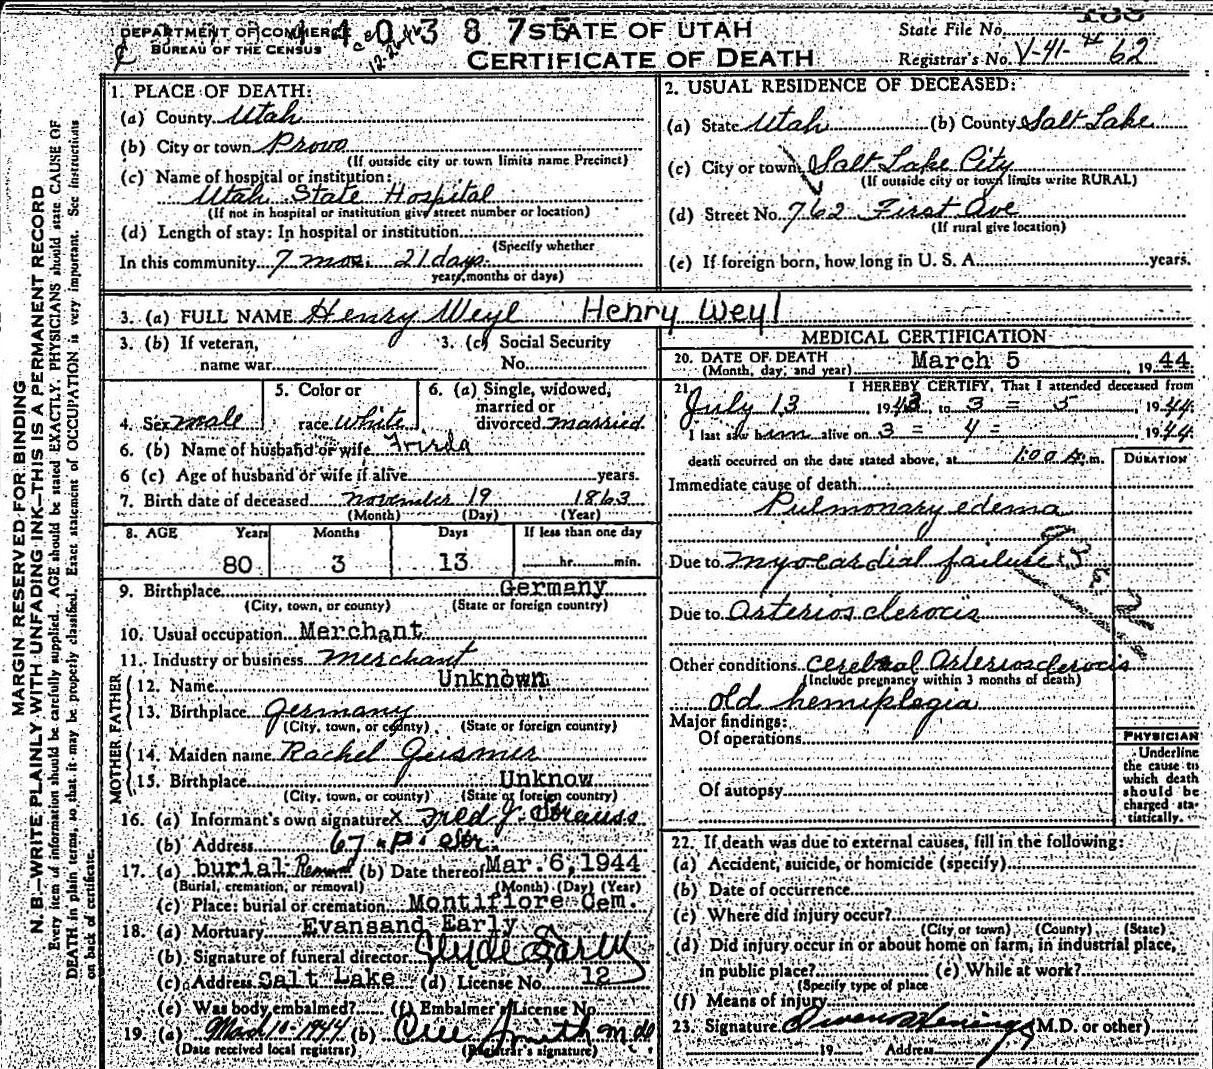 DEPARTMENT OF COMMERCE
BUREAU OF THE CENSUS
4 0 3 8 7
STATE OF UTAH
CERTIFICATE OF DEATH
State File No.
Registrar's No. V-41-#62
MARGIN RESERVED FOR BINDING
N. B.—WRITE PLAINLY WITH UNFADING INK—THIS IS A PERMANENT RECORD
Every item of information should be carefully supplied. AGE should be stated EXACTLY. PHYSICIANS should state CAUSE OF
DEATH in plain terms, so that it may be properly classified. Exact statement of OCCUPATION is very important. See instructions
on back of certificate.
1. PLACE OF DEATH:
(a) County Utah
(b) City or town Provo
(If outside city or town limits name Precinct)
(c) Name of hospital or institution:
Utah State Hospital
(If not in hospital or institution give street number or location)
(d) Length of stay: In hospital or institution
(Specify whether
In this community 7 mos. 21 days
years, months or days)
2. USUAL RESIDENCE OF DECEASED:
(a) State Utah (b) County Salt Lake
(c) City or town Salt Lake City
(If outside city or town limits write RURAL)
(d) Street No. 762 First Ave
(If rural give location)
(e) If foreign born, how long in U. S. A. years.
3. (a) FULL NAME Henry Weyl Henry Weyl
3. (b) If veteran, name war
3. (c) Social Security No.
4. Sex male
5. Color or race White
6. (a) Single, widowed, married or divorced married
6. (b) Name of husband or wife Frieda
6 (c) Age of husband or wife if alive years.
7. Birth date of deceased november 19 1863
(Month) (Day) (Year)
8. AGE Years Months Days If less than one day
80 3 13 hr. min.
9. Birthplace Germany
(City, town, or county) (State or foreign country)
10. Usual occupation Merchant
11. Industry or business merchant
FATHER
12. Name Unknown
13. Birthplace Germany
(City, town, or county) (State or foreign country)
MOTHER
14. Maiden name Rachel Geismer
15. Birthplace Unknow
(City, town, or county) (State or foreign country)
16. (a) Informant's own signature x Fred J. Strauss
(b) Address 67 P. Str.
17. (a) burial Removal (b) Date thereof Mar. 6, 1944
(Burial, cremation, or removal) (Month) (Day) (Year)
(c) Place: burial or cremation Montifiore Cem.
18. (a) Mortuary Evansand Early
(b) Signature of funeral director Clyde Early
(c) Address Salt Lake (d) License No. 12
(e) Was body embalmed? (f) Embalmer's License No.
19. (a) Mar 10-1944 (b) Smith M.D.
(Date received local registrar) (Registrar's signature)
MEDICAL CERTIFICATION
20. DATE OF DEATH March 5, 1944
(Month, day, and year)
21. I HEREBY CERTIFY, That I attended deceased from
July 13 1943, to 3 = 5, 1944
I last saw him alive on 3 = 4 = 1944
death occurred on the date stated above, at 1:00 A. m.
DURATION
Immediate cause of death
Pulmonary edema
Due to myocardial failure
Due to arteriosclerocis
Other conditions cerebral Arteriosclerocis
(Include pregnancy within 3 months of death)
old hemiplegia
Major findings:
Of operations
Of autopsy
PHYSICIAN
Underline
the cause to
which death
should be
charged sta-
tistically.
22. If death was due to external causes, fill in the following:
(a) Accident, suicide, or homicide (specify)
(b) Date of occurrence
(c) Where did injury occur?
(City or town) (County) (State)
(d) Did injury occur in or about home on farm, in industrial place,
in public place? (e) While at work?
(Specify type of place
(f) Means of injury
23. Signature (M.D. or other)
19 Address